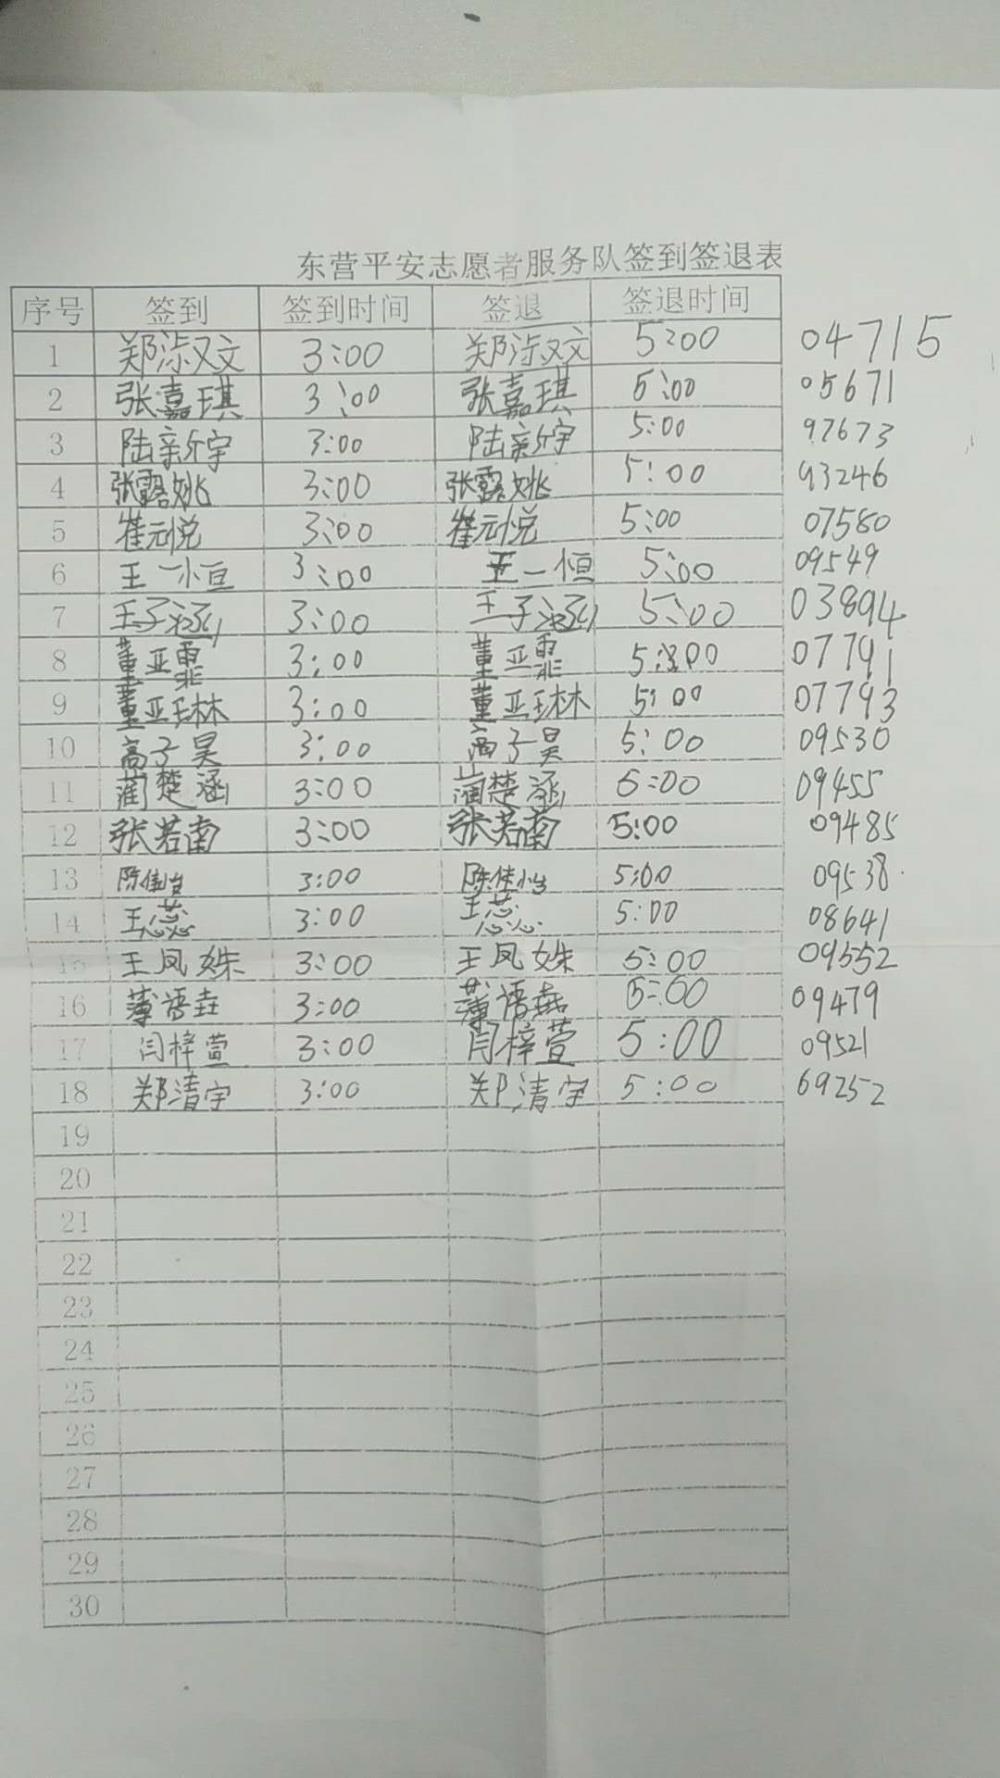 东营平安志愿者服务队签到签退表
序号 签到 签到时间 签退 签退时间
1 3:00 5:00 04715
2 张嘉琪 3:00 张嘉琪 5:00 05671
3 陆新宇 3:00 陆新宇 5:00 97673
4 张露姚 3:00 张露姚 5:00 93246
5 崔元悦 3:00 崔元悦 5:00 07580
6 王一恒 3:00 王一恒 5:00 09549
7 王子涵 3:00 王子涵 5:00 03894
8 董亚霏 3:00 董亚霏 5:00 07791
9 董亚琳 3:00 董亚琳 5:00 07793
10 高子昊 3:00 高子昊 5:00 09530
11 蔺楚涵 3:00 蔺楚涵 5:00 09455
12 张若南 3:00 张若南 5:00 09485
13 陈佳怡 3:00 陈佳怡 5:00 09538
14 王蕊 3:00 王蕊 5:00 08641
15 王凤姝 3:00 王凤姝 5:00 09552
16 薄语垚 3:00 薄语垚 5:00 09479
17 闫梓萱 3:00 闫梓萱 5:00 09521
18 郑清宇 3:00 郑清宇 5:00 69252
19
20
21
22
23
24
25
26
27
28
29
30